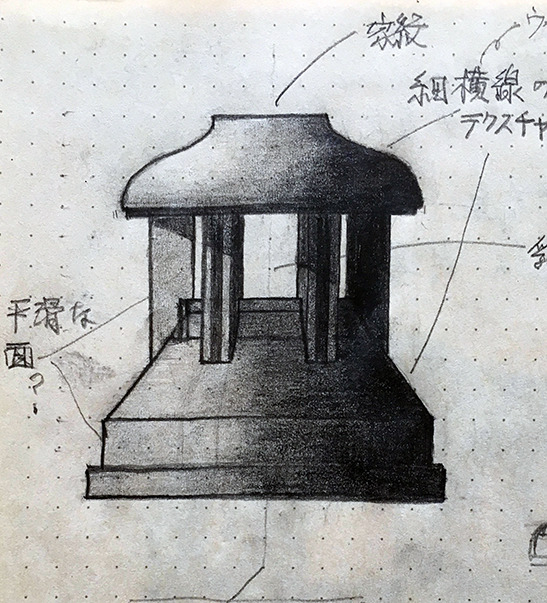 家紋
ウ
細横線の
テクスチャ
平滑な
面?